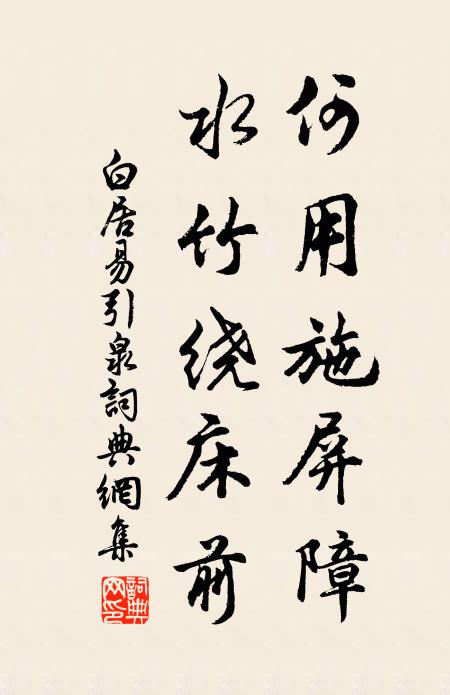 何用施屏障
水竹绕床前
白居易引泉詞典網集
詞典网印